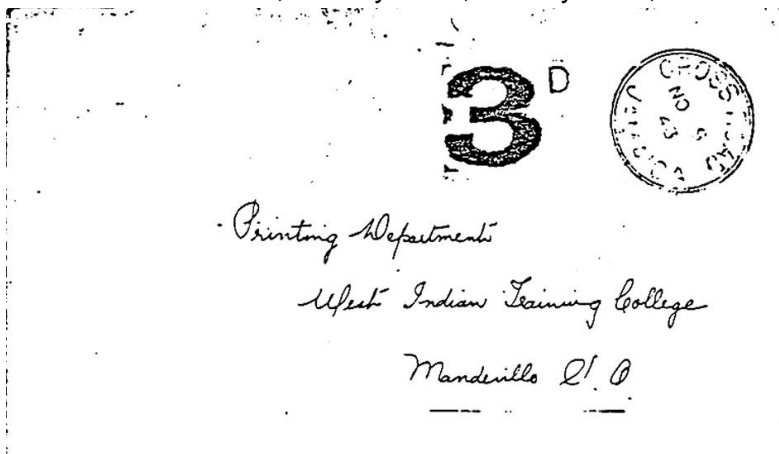 3D
CROSS ROAD
NO 6
43
Printing Department
West Indian Training College
Mandeville P. O